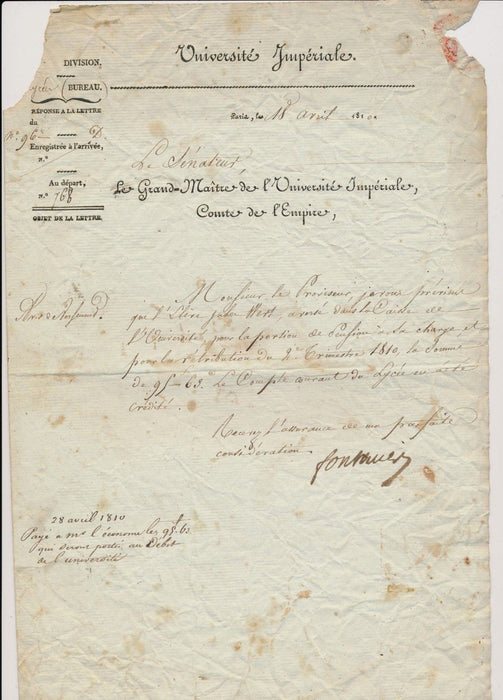 Université Impériale.
DIVISION,
BUREAU.
RÉPONSE A LA LETTRE
du
N.° 96
Enregistrée à l'arrivée,
N.°
Au départ,
N.° 768
OBJET DE LA LETTRE.
Paris, le 18 avril 1810.
Le Sénateur,
Le Grand-Maître de l'Université Impériale,
Comte de l'Empire,
Avis de
Monsieur le Proviseur, je vous préviens
que l'Élève a versé dans la Caisse de
l'Université, pour la portion de Pension à sa charge et
pour la rétribution du 2e Trimestre 1810, la Somme
de 95-63. Le Compte courant du Lycée en a été
crédité.
Recevez l'assurance de ma parfaite
considération.
Fontanes
28 avril 1810
Payé a mr l'économe les 95f 63
qui seront portés au Débit
de l'université